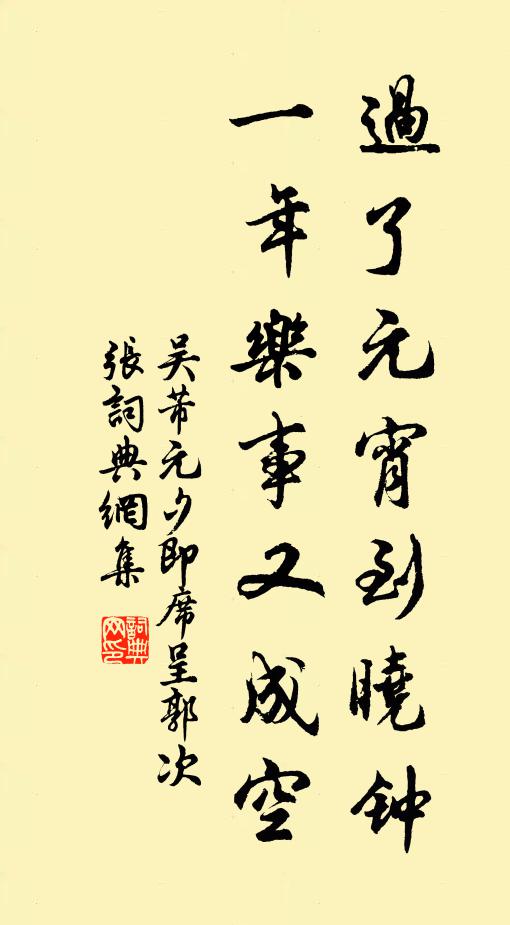 過了元宵到曉钟
一年樂事又成空
吴芾元夕即席呈郭次
張詞典網集
詞典网印